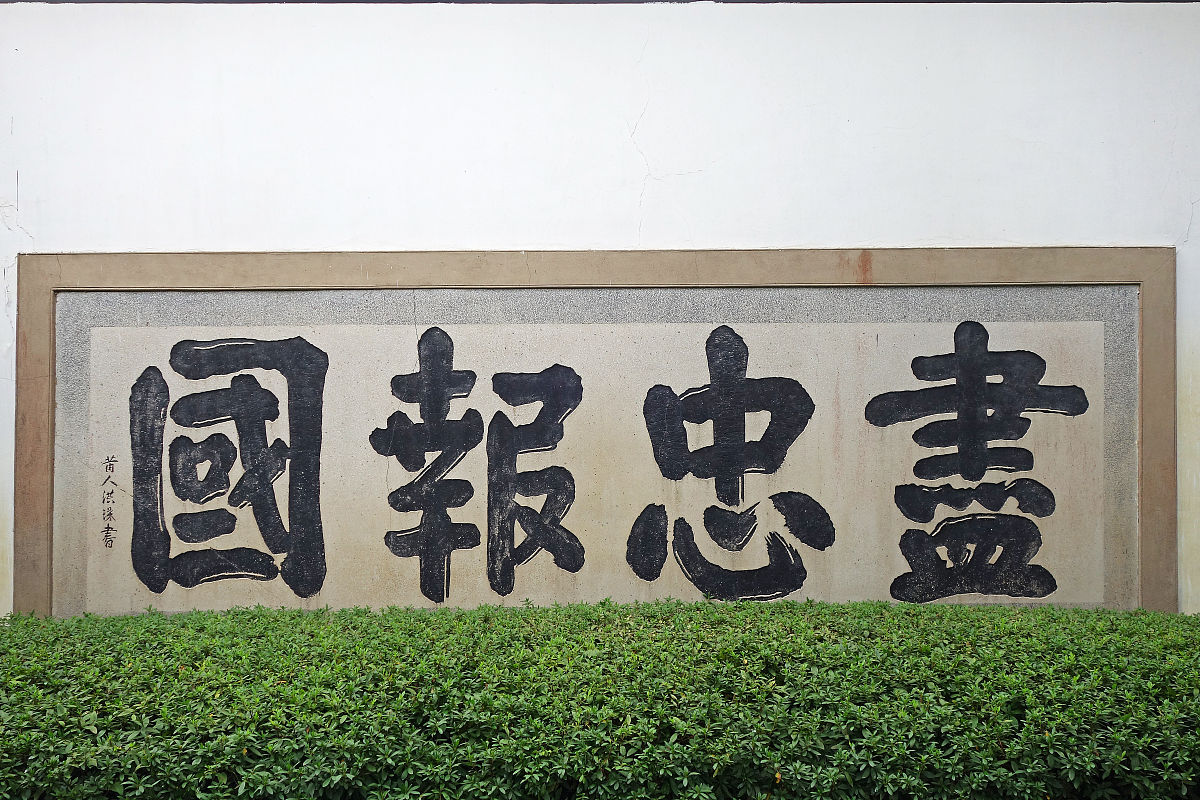 盡忠報國
莆人洪洙書